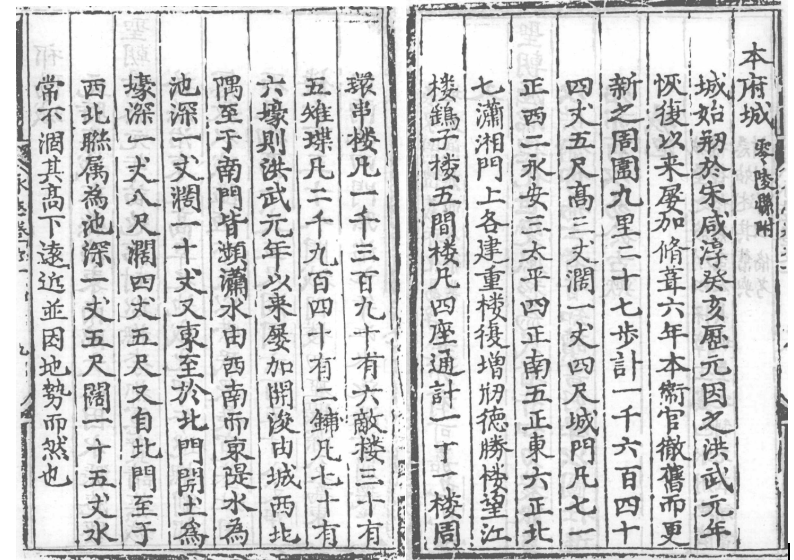 本府城 零陵縣附
城始剏於宋咸淳癸亥歷元因之洪武元年
恢復以來屡加脩葺六年本衛官徹舊而更
新之周圍九里二十七步計一千六百四十
四丈五尺高三丈濶一丈四尺城門凡七一
正西二永安三太平四正南五正東六正北
七瀟湘門上各建重楼復增剏德勝楼望江
楼鷂子楼五間楼凡四座通計一十一楼周
環串楼凡一千三百九十有六敵楼三十有
五雉堞凡二千九百四十有二鋪凡七十有
六壕則洪武元年以來屡加開浚由城西北
隅至于南門皆瀕瀟水由西南而東隄水為
池深一丈濶一十丈又東至於北門開土為
壕深一丈八尺濶四丈五尺又自北門至于
西北聮属為池深一丈五尺闊一十五丈水
常不涸其高下遠近並因地勢而然也